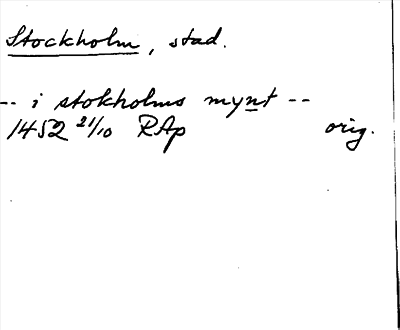 Stockholm, stad.
-- i stokholms mynt --
1452 21/10 RAp orig.